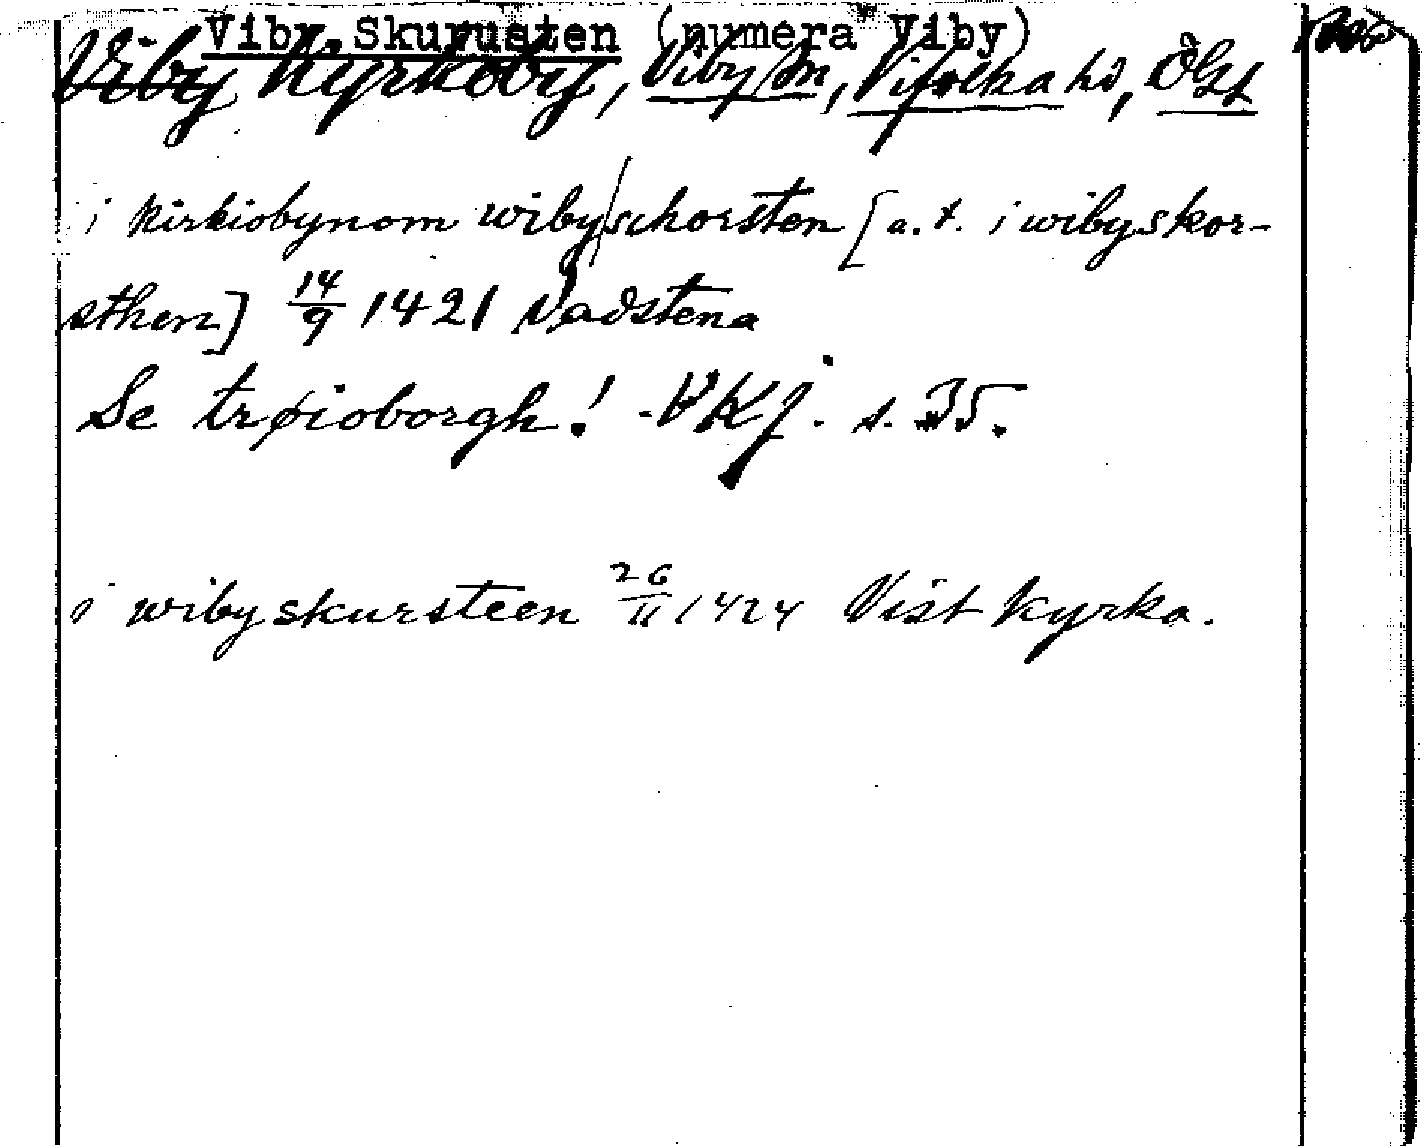 Viby, Skurusten (numera Viby)
Viby Kyrkoby, Viby sn, Vifolka hd, Ögt
i kirkiobynom wiby/schorsten [a. t. i wibyskor-
sthen] 14/9 1421 Vadstena
Se trøioborgh! VKJ. s. 35.
i wibyskursteen 26/11 1424 Vist kyrka.